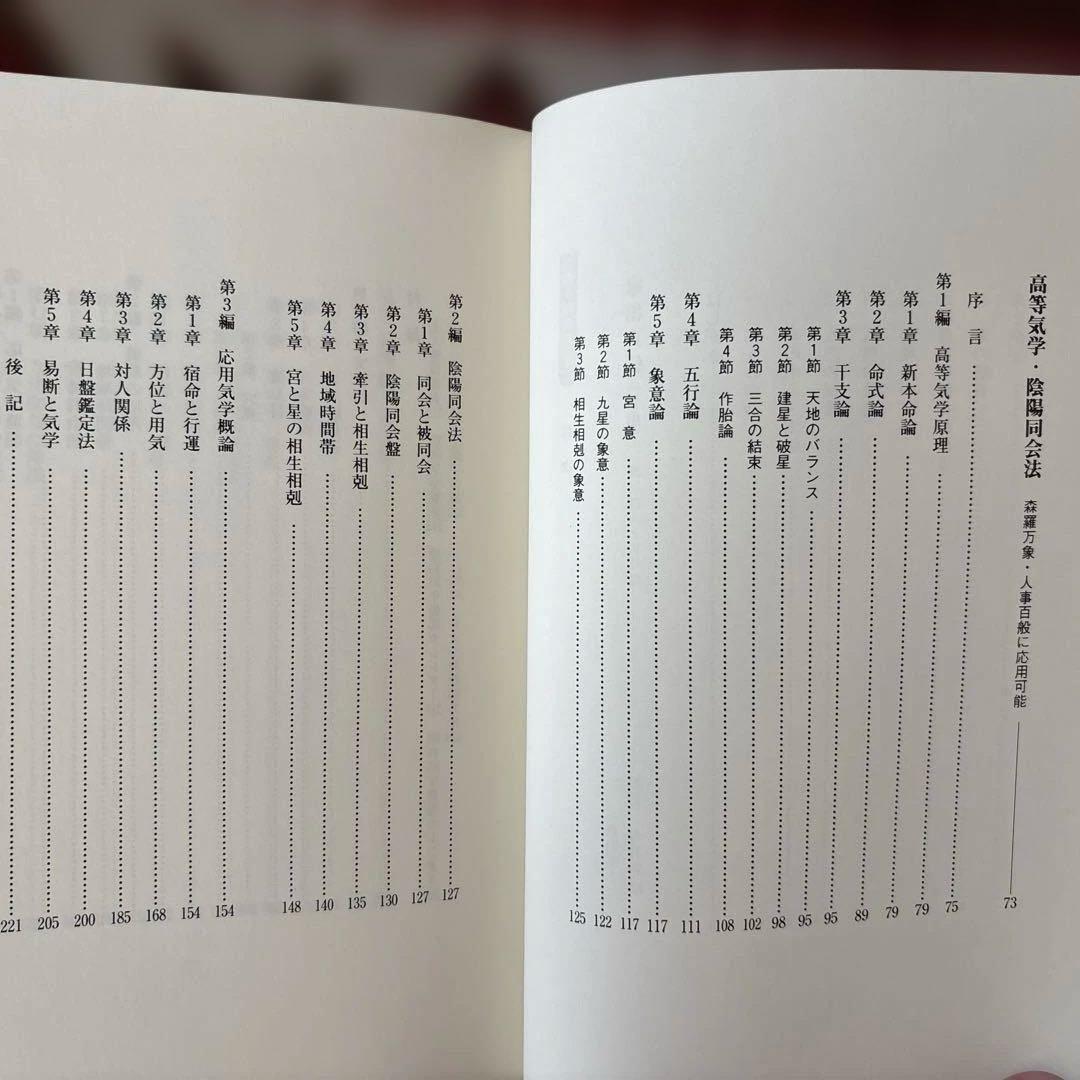 高等気学・陰陽同会法 森羅万象・人事百般に応用可能 73
序言 75
第1編 高等気学原理 79
第1章 新本命論 79
第2章 命式論 89
第3章 干支論 95
第1節 天地のバランス 95
第2節 建星と破星 98
第3節 三合の結束 102
第4節 作胎論 108
第4章 五行論 111
第5章 象意論 117
第1節 宮意 117
第2節 九星の象意 122
第3節 相生相剋の象意 125
第2編 陰陽同会法 127
第1章 同会と被同会 127
第2章 陰陽同会盤 130
第3章 牽引と相生相剋 135
第4章 地域時間帯 140
第5章 宮と星の相生相剋 148
第3編 応用気学概論 154
第1章 宿命と行運 154
第2章 方位と用気 168
第3章 対人関係 185
第4章 日盤鑑定法 200
第5章 易断と気学 205
後記 221